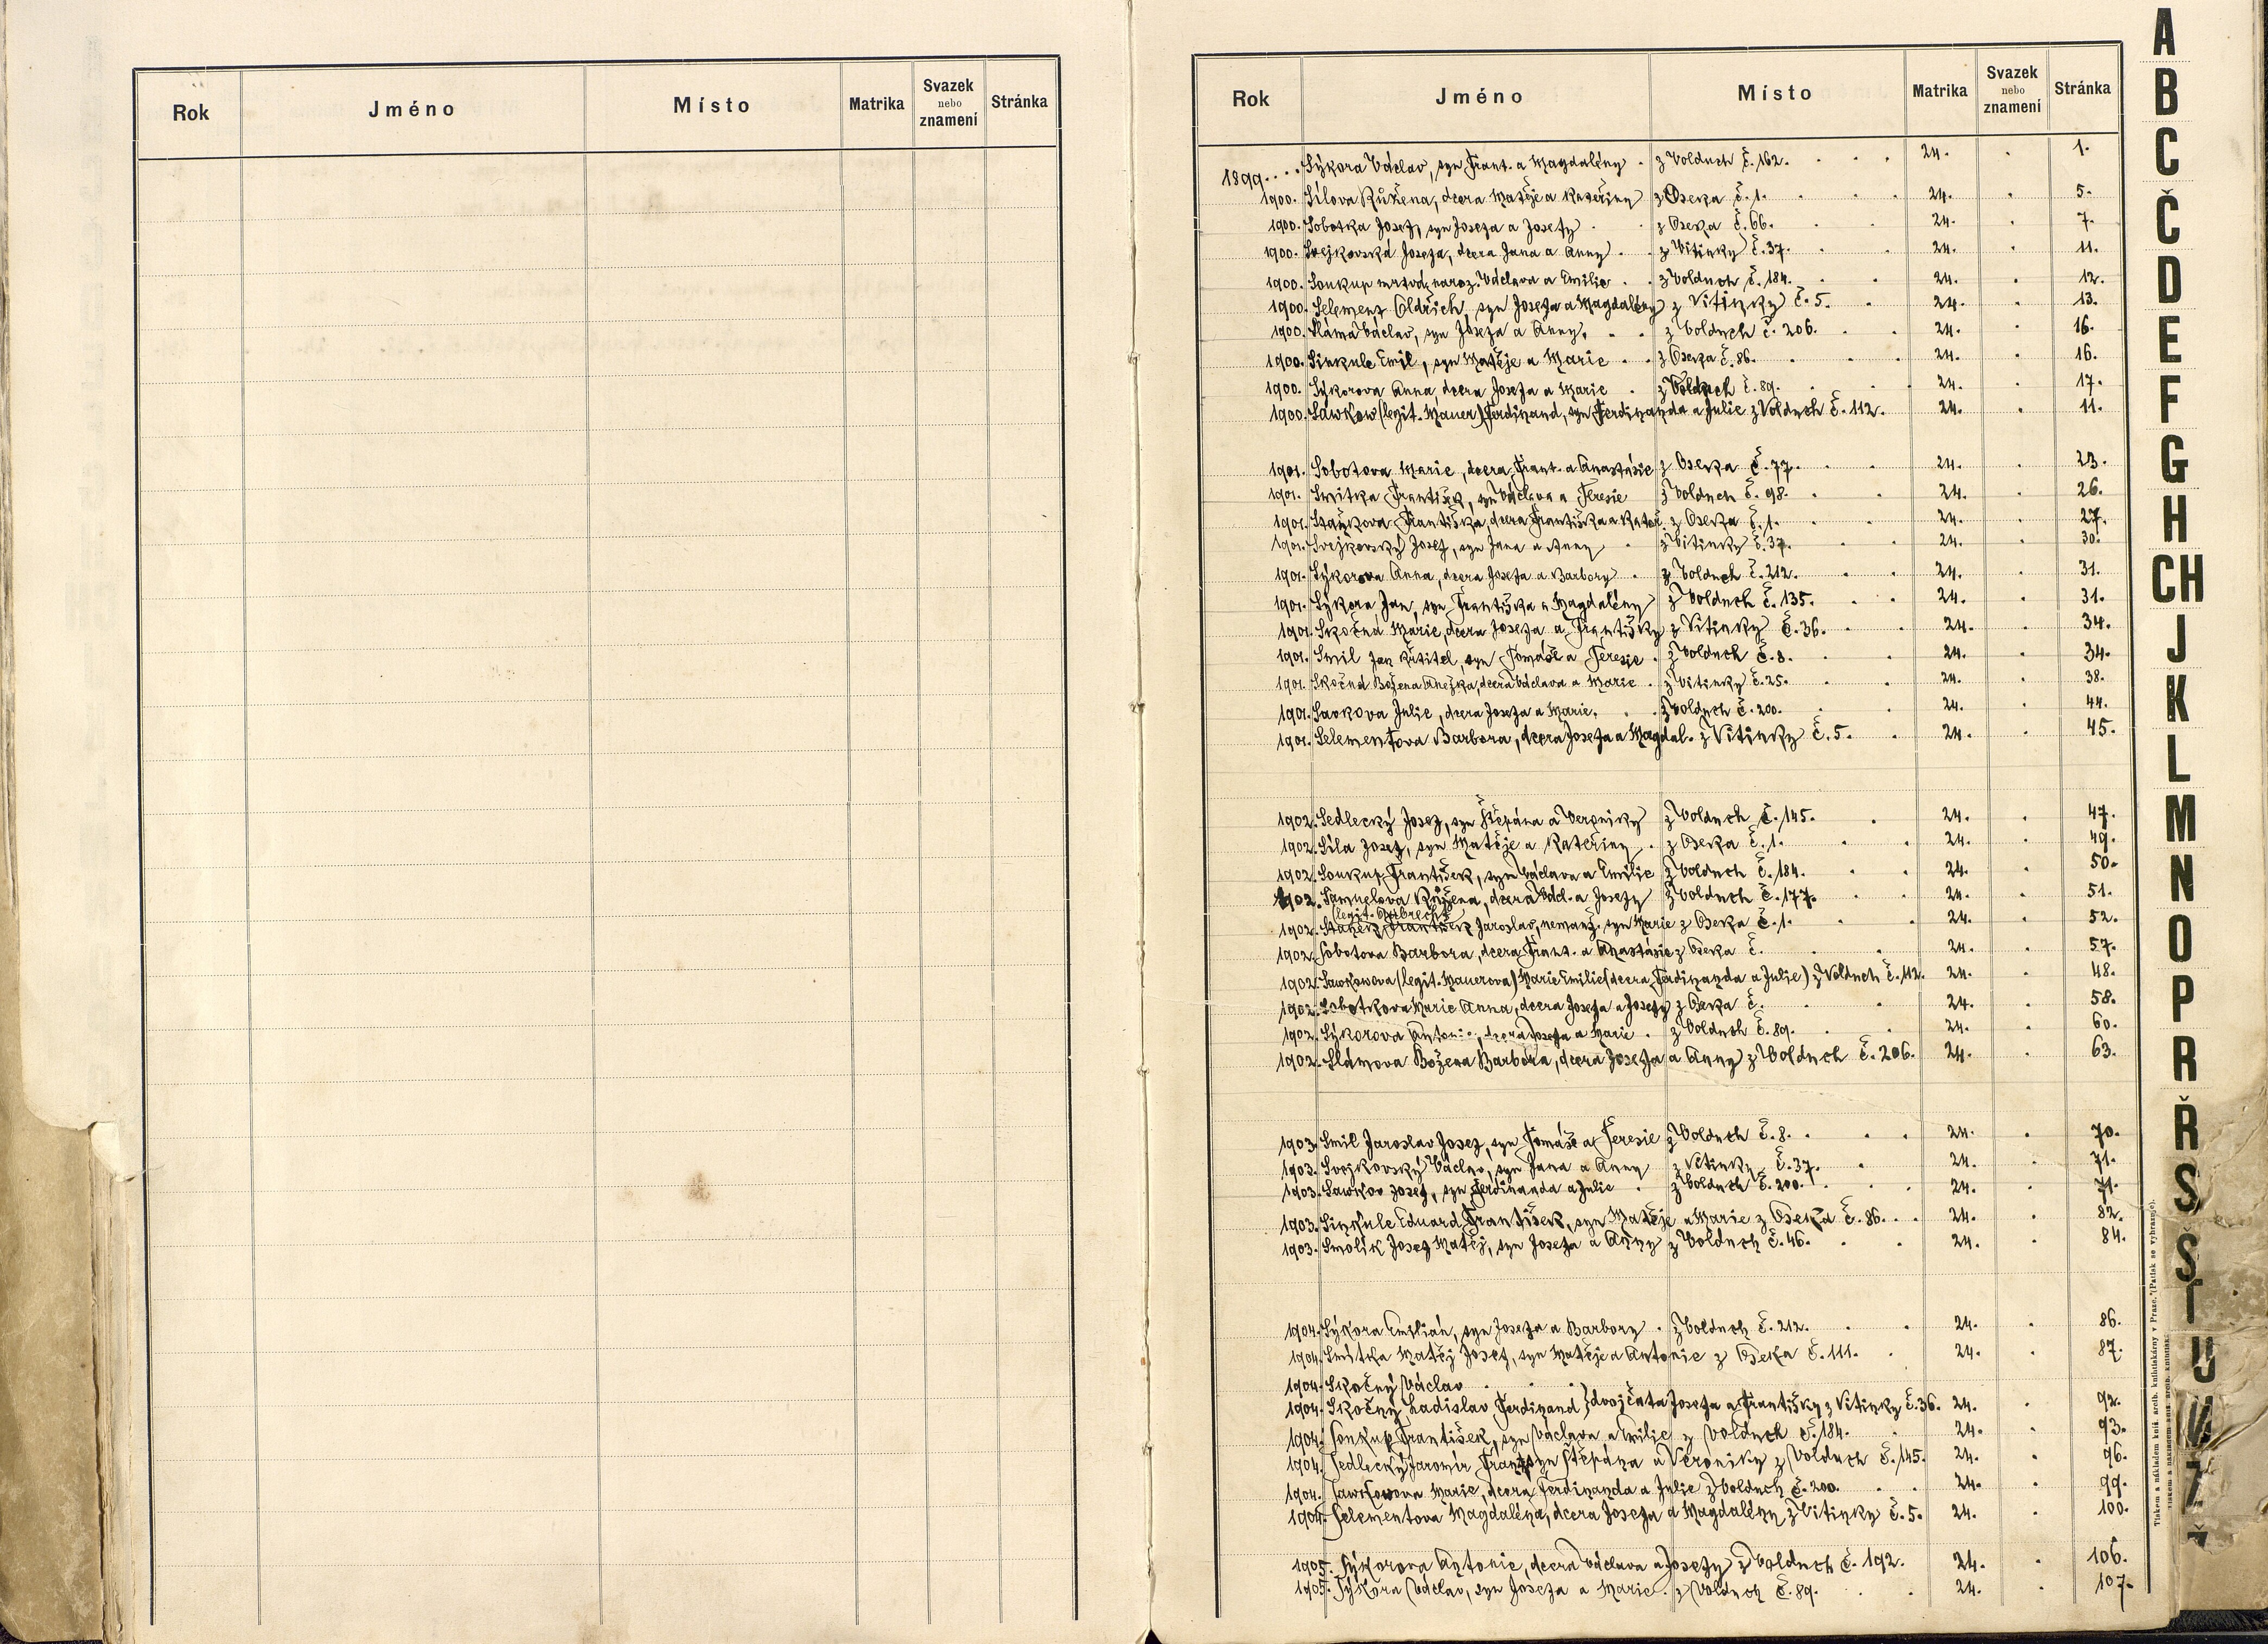 Rok Jméno Místo Matrika Svazek nebo znamení Stránka
Rok Jméno Místo Matrika Svazek nebo znamení Stránka
1899. Sýkora Václav, syn Frant. a Magdalény z Volduch č. 162. 24. 1.
1900. Sílova Růžena, dcera Matěje a Kateřiny z Oseka č. 1. 24. 5.
1900. Sobotka Josef, syn Josefa a Josefy z Oseka č. 66. 24. 7.
1900. Svejkovská Josefa, dcera Jana a Anny z Vitinky č. 37. 24. 11.
1900. Soukup mrtvě naroz. Václava a Emilie z Volduch č. 184. 24. 12.
1900. Selement Oldřich, syn Josefa a Magdalény z Vitinky č. 5. 24. 13.
1900. Sláma Václav, syn Josefa a Anny. z Volduch č. 206. 24. 16.
1900. Sinkule Emil, syn Matěje a Marie z Oseka č. 86. 24. 16.
1900. Sýkorova Anna, dcera Josefa a Marie z Volduch č. 89. 24. 17.
1900. Sawkow (legit. Mauer) Ferdinand, syn Ferdinanda a Julie z Volduch č. 112. 24. 11.
1901. Sobotova Marie, dcera Frant. a Anastásie z Oseka č. 77. 24. 23.
1901. Smitka František, syn Václava a Teresie z Volduch č. 98. 24. 26.
1901. Františka, dcera Františka a Kateř. z Oseka č. 1. 24. 27.
1901. Svejkovský Josef, syn Jana a Anny z Vitinky č. 37. 24. 30.
1901. Sýkorova Anna, dcera Josefa a Barbory z Volduch č. 212. 24. 31.
1901. Sýkora Jan, syn Františka a Magdalény z Volduch č. 135. 24. 31.
1901. Skočná Marie, dcera Josefa a Františky z Vitinky č. 36. 24. 34.
1901. Smil Jan Křtitel, syn Tomáše a Teresie z Volduch č. 8. 24. 34.
1901. Skočná Božena Anežka, dcera Václava a Marie z Vitinky č. 25. 24. 38.
1901. Savkova Julie, dcera Josefa a Marie. z Volduch č. 200. 24. 44.
1901. Selementova Barbora, dcera Josefa a Magdal. z Vitinky č. 5. 24. 45.
1902. Sedlecký Josef, syn Štěpána a Veroniky z Volduch č. 145. 24. 47.
1902. Síla Josef, syn Matěje a Kateřiny z Oseka č. 1. 24. 49.
1902. Soukup František, syn Václava a Emilie z Volduch č. 184. 24. 50.
1902. Samuelova Růžena, dcera Václ. a Josefy z Volduch č. 177. 24. 51.
1902. František Jaroslav, nemanž. syn Marie z Oseka č. 1. 24. 52.
1902. Sobotova Barbora, dcera Frant. a Anastásie z Oseka č. 24. 57.
1902. Sawkowova (legit. Mauerova) Marie Emilie (dcera Ferdinanda a Julie) z Volduch č. 112. 24. 48.
1902. Sobotkova Marie Anna, dcera Josefa a Josefy z Oseka č. 24. 58.
1902. Sýkorova Antonie, dcera Josefa a Marie z Volduch č. 89. 24. 60.
1902. Slámova Božena Barbora, dcera Josefa a Anny z Volduch č. 206. 24. 63.
1903. Smil Jaroslav Josef, syn Tomáše a Teresie z Volduch č. 8. 24. 70.
1903. Svejkovský Václav, syn Jana a Anny z Vitinky č. 37. 24. 71.
1903. Sawkov Josef, syn Ferdinanda a Julie z Volduch č. 200. 24. 71.
1903. Sinkule Eduard František, syn Matěje a Marie z Oseka č. 86. 24. 82.
1903. Smolík Josef Matěj, syn Josefa a Anny z Volduch č. 46. 24. 84.
1904. Sýkora Emilián, syn Josefa a Barbory z Volduch č. 212. 24. 86.
1904. Smitka Matěj Josef, syn Matěje a Antonie z Oseka č. 111. 24. 87.
1904. Skočný Václav
1904. Skočný Ladislav Ferdinand } dvojčata Josefa a Františky z Vitinky č. 36. 24. 92.
1904. Soukup František, syn Václava a Emilie z Volduch č. 184. 24. 93.
1904. Sedlecký Jaromír Frant. syn Štěpána a Veroniky z Volduch č. 145. 24. 96.
1904. Sawkowova Marie, dcera Ferdinanda a Julie z Volduch č. 200. 24. 99.
1904. Selementova Magdaléna, dcera Josefa a Magdalény z Vitinky č. 5. 24. 100.
1905. Sýkorova Antonie, dcera Václava a Josefy z Volduch č. 192. 24. 106.
1905. Sýkora Václav, syn Josefa a Marie z Volduch č. 89. 24. 107.
A
B
C
Č
D
E
F
G
H
CH
J
K
L
M
N
O
P
R
Ř
S
Š
T
U
V
Z
Ž